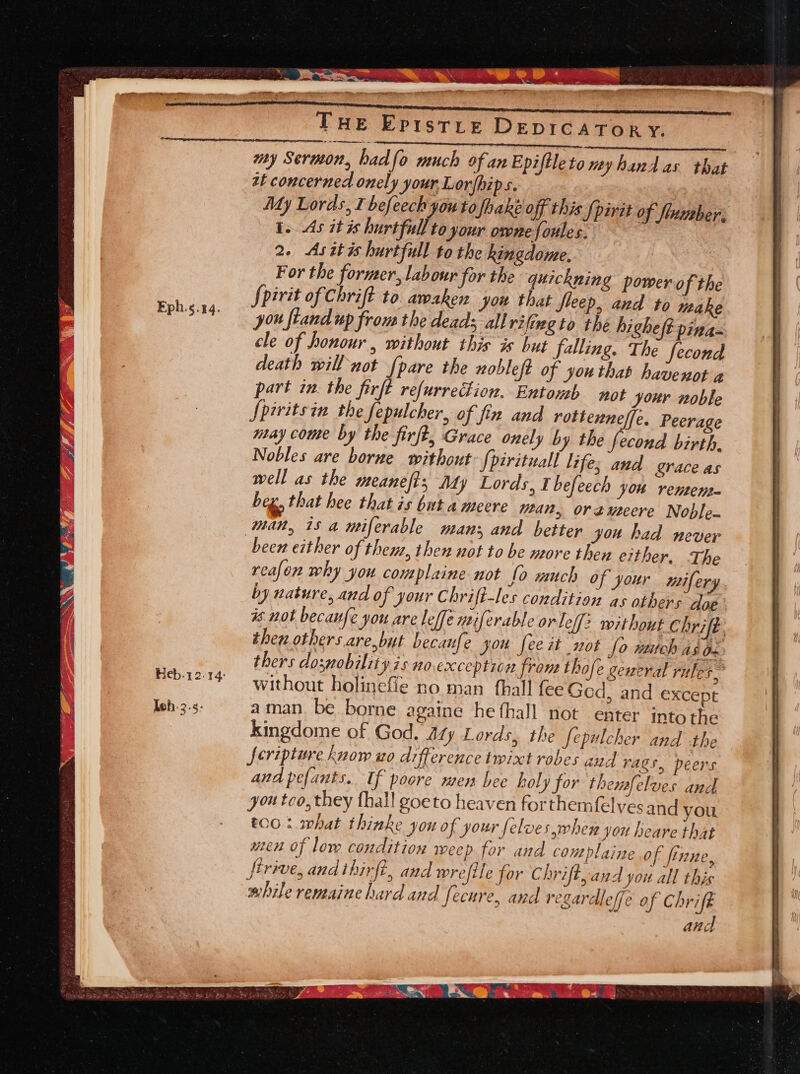 THE EPISTLE DEDICATORY.
my Sermon, had ſo much of an Epiſtle to my hand as that
it concerned onely your Lorſhips.
My Lords, I beſeech you to ſhake off this ſpirit of ſlumber.
1. As it is hurtfull to your owne ſoules.
2. As it is hurtfull to the kingdome.
For the former, labour for the quickning power of the
Eph.5.14.
ſpirit of Chriſt to awaken you that ſleep, and to make
you ſtand up from the dead; all riſing to the higheſt pina-
cle of honour, without this is but falling. The ſecond
death will not ſpare the nobleſt of you that have not a
part in the firſt reſurrection. Entomb not your noble
ſpirits in the ſepulcher, of ſin and rottenneſſe. Peerage
may come by the firſt, Grace onely by the ſecond birth.
Nobles are borne without ſpirituall life, and grace as
well as the meaneſt; My Lords, I beſeech you remem-
ber, that hee that is but a meere man, or a meere Noble-
man, is a miſerable man; and better you had never
been either of them, then not to be more then either. The
reaſon why you complaine not ſo much of your miſery
by nature, and of your Chriſt-les condition as others doe
is not becauſe you are leſſe miſerable or leſſe without Chriſt
then others are, but becauſe you ſee it not ſo much as o-
thers do; nobility is no exception from thoſe general rules
Heb.12.14.
without holineſſe no man ſhall ſee God, and except
Ioh.3.5.
a man be borne againe he ſhall not enter into the
kingdome of God. My Lords, the ſepulcher and the
ſcripture know no difference twixt robes and rags, peers
and peſants. If poore men bee holy for themſelves and
you too, they ſhall goe to heaven for themſelves and you
too: what thinke you of your ſelves, when you heare that
men of low condition weep for and complaine of ſinne,
ſtrive, and thirſt, and wreſtle for Chriſt, and you all this
while remaine hard and ſecure, and regardleſſe of Chriſt
and